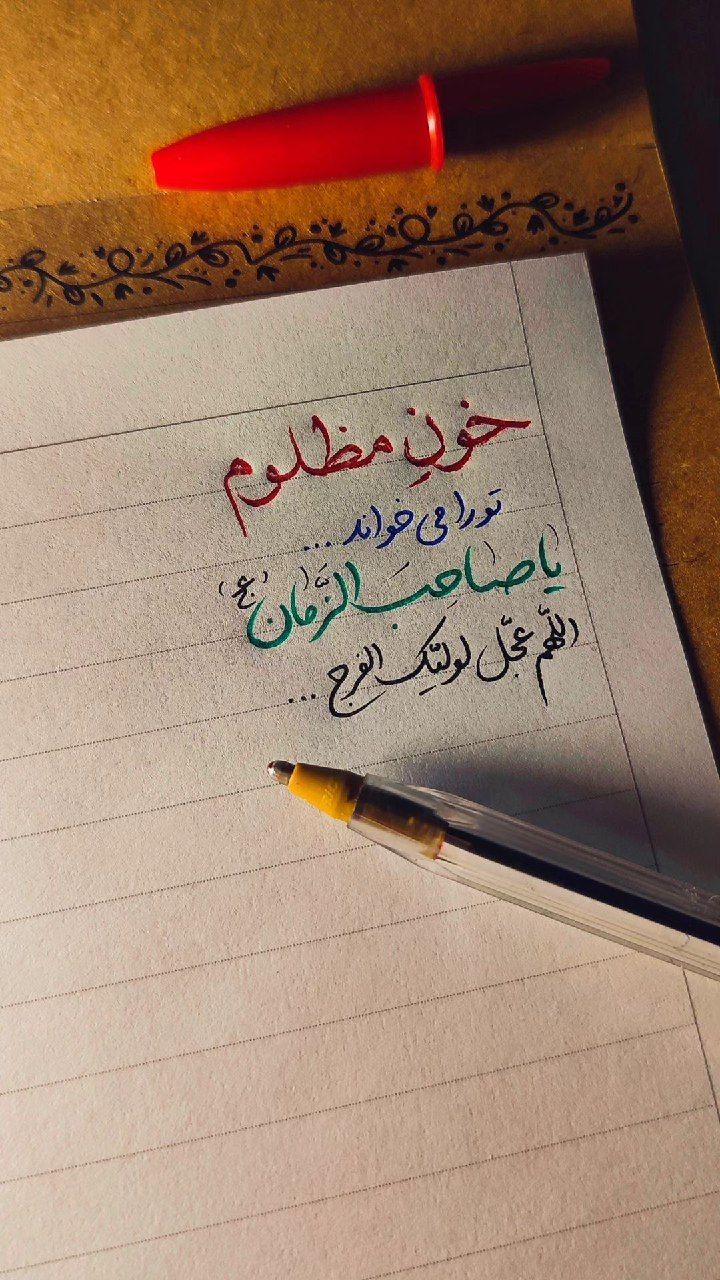 خونِ مظلوم
تو را می خواند ...
یا صاحِبَ الزَّمان (عج)
اللّهم عجّل لولیّک الفرج ...